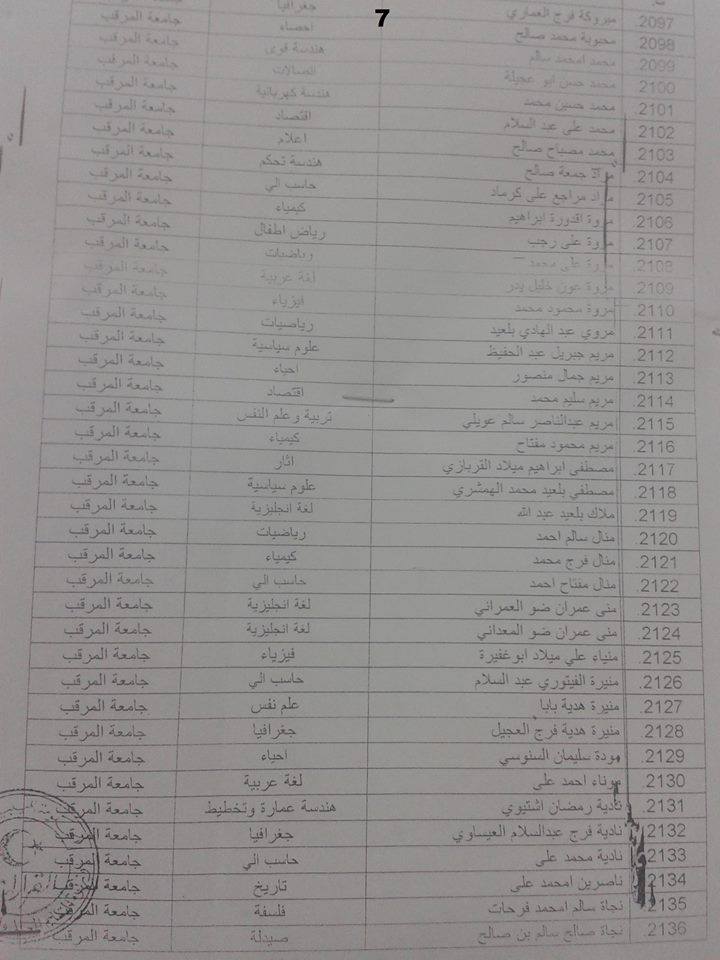 7
2097. مبروكة فرج العماري جغرافيا جامعة المرقب
2098. محبوبة محمد صالح احصاء جامعة المرقب
2099. محمد امحمد سالم هندسة قوى جامعة المرقب
2100. محمد حسن ابو عجيلة جامعة المرقب
2101. محمد حسين محمد هندسة كهربائية جامعة المرقب
2102. محمد على عبد السلام اقتصاد جامعة المرقب
2103. محمد مصباح صالح اعلام جامعة المرقب
2104. مراد جمعة صالح هندسة تحكم جامعة المرقب
2105. مراد مراجع على كرماد حاسب الي جامعة المرقب
2106. مروة اقدورة ابراهيم كيمياء جامعة المرقب
2107. مروة على رجب رياض اطفال جامعة المرقب
2108. مروة على محمد رياضيات جامعة المرقب
2109. مروة عون خليل بدر لغة عربية جامعة المرقب
2110. مروة محمود محمد فيزياء جامعة المرقب
2111. مروي عبد الهادي بلعيد رياضيات جامعة المرقب
2112. مريم جبريل عبد الحفيظ علوم سياسية جامعة المرقب
2113. مريم جمال منصور احياء جامعة المرقب
2114. مريم سليم محمد اقتصاد جامعة المرقب
2115. مريم عبدالناصر سالم عويلي تربية وعلم النفس جامعة المرقب
2116. مريم محمود مفتاح كيمياء جامعة المرقب
2117. مصطفى ابراهيم ميلاد القربازي اثار جامعة المرقب
2118. مصطفي بلعيد محمد الهمشري علوم سياسية جامعة المرقب
2119. ملاك بلعيد عبد الله لغة انجليزية جامعة المرقب
2120. منال سالم احمد رياضيات جامعة المرقب
2121. منال فرج محمد كيمياء جامعة المرقب
2122. منال مفتاح احمد حاسب الي جامعة المرقب
2123. منى عمران ضو العمراني لغة انجليزية جامعة المرقب
2124. منى عمران ضو المعداني لغة انجليزية جامعة المرقب
2125. منياء علي ميلاد ابوغفيرة فيزياء جامعة المرقب
2126. منيرة الفيتوري عبد السلام حاسب الي جامعة المرقب
2127. منيرة هدية بابا علم نفس جامعة المرقب
2128. منيرة هدية فرج العجيل جغرافيا جامعة المرقب
2129. مودة سليمان السنوسي احياء جامعة المرقب
2130. موناء احمد على لغة عربية جامعة المرقب
2131. نادية رمضان اشتيوي هندسة عمارة وتخطيط جامعة المرقب
2132. نادية فرج عبدالسلام العيساوي جغرافيا جامعة المرقب
2133. نادية محمد على حاسب الي جامعة المرقب
2134. ناصرين امحمد على تاريخ جامعة المرقب
2135. نجاة سالم امحمد فرحات فلسفة جامعة المرقب
2136. نجاة صالح سالم بن صالح صيدلة جامعة المرقب